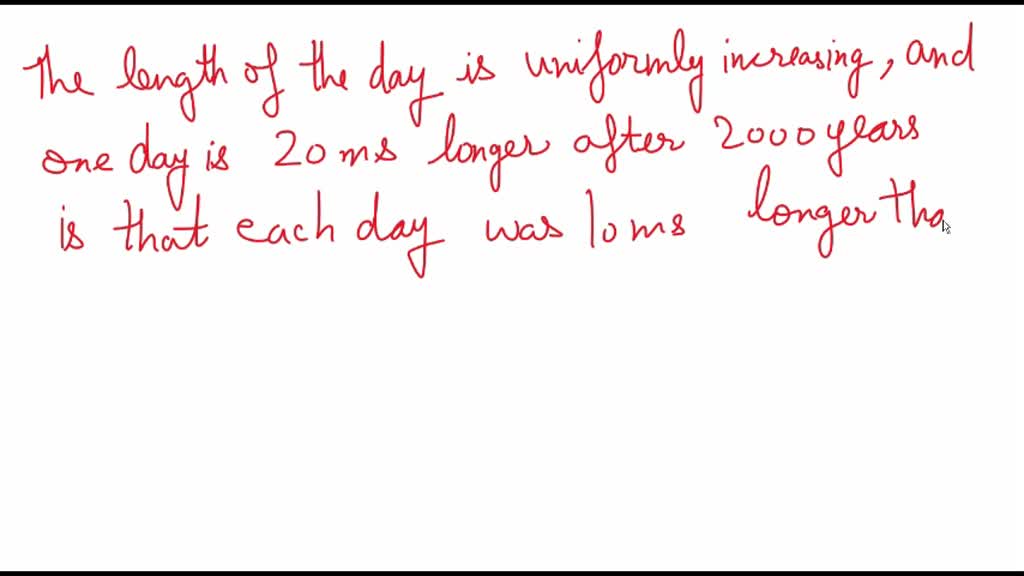 The length of the day is uniformly increasing, and
one day is 20 ms longer after 2000 years
is that each day was 10 ms longer tha